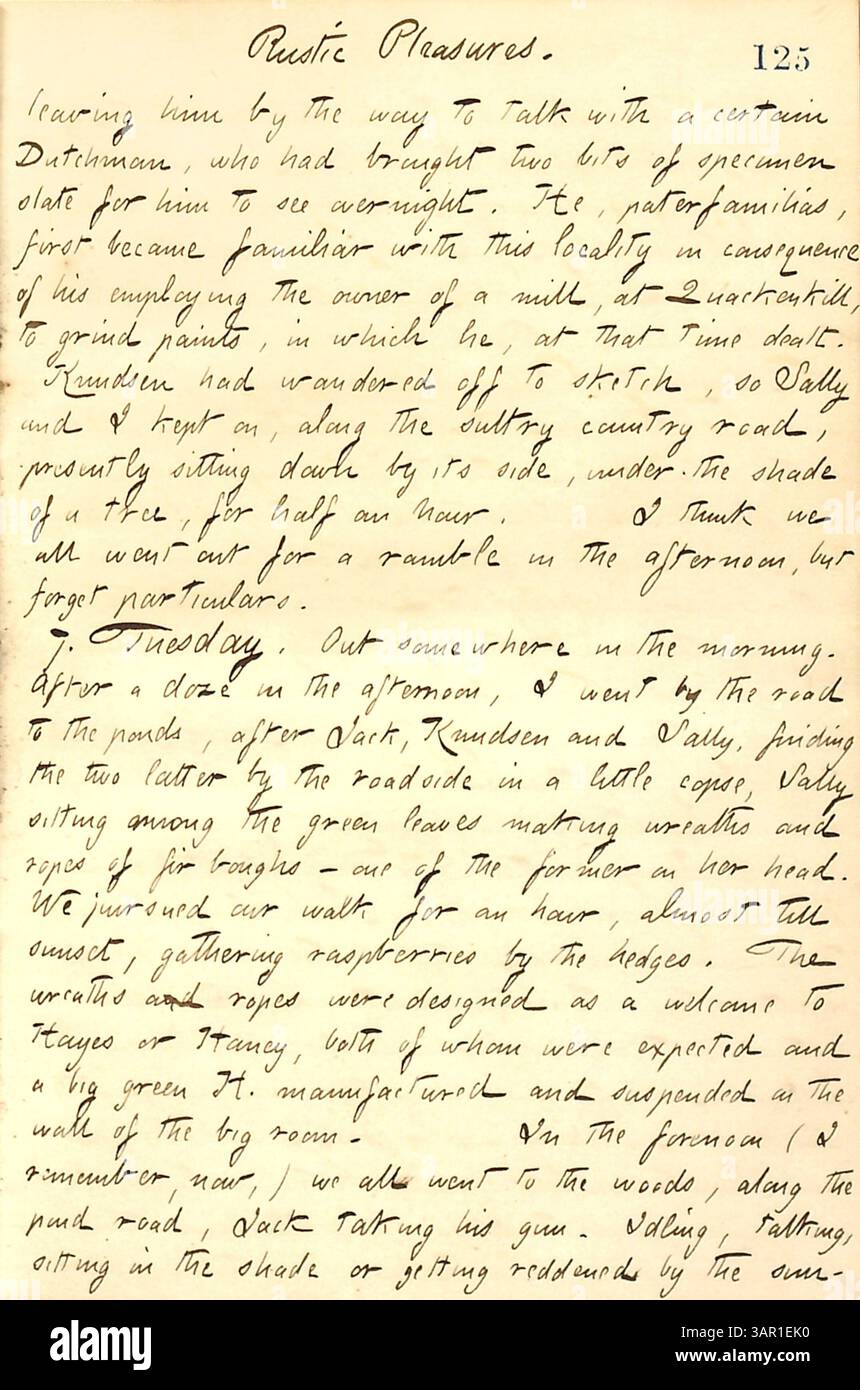 Rustic Pleasures.
125
leaving him by the way to talk with a certain
Dutchman, who had brought two bits of specimen
slate for him to see overnight. He, paterfamilias,
first became familiar with this locality in consequence
of his employing the owner of a mill, at Quackenkill,
to grind paints, in which he, at that time dealt.
Knudsen had wandered off to sketch, so Sally
and I kept on, along the sultry country road,
presently sitting down by its side, under the shade
of a tree, for half an hour. I think we
all went out for a ramble in the afternoon, but
forget particulars.
7. Tuesday. Out somewhere in the morning.
After a doze in the afternoon, I went by the road
to the ponds, after Jack, Knudsen and Sally, finding
the two latter by the roadside in a little copse, Sally
sitting among the green leaves making wreaths and
ropes of fir boughs - one of the former on her head.
We pursued our walk for an hour, almost till
sunset, gathering raspberries by the hedges. The
wreaths and ropes were designed as a welcome to
Hayes or Haney, both of whom were expected and
a big green H. manufactured and suspended on the
wall of the big room. In the forenoon (I
remember, now,) we all went to the woods, along the
pond road, Jack taking his gun. Idling, talking,
sitting in the shade or getting reddened by the sun-
alamy
Image ID: 3AR1EK0
www.alamy.com